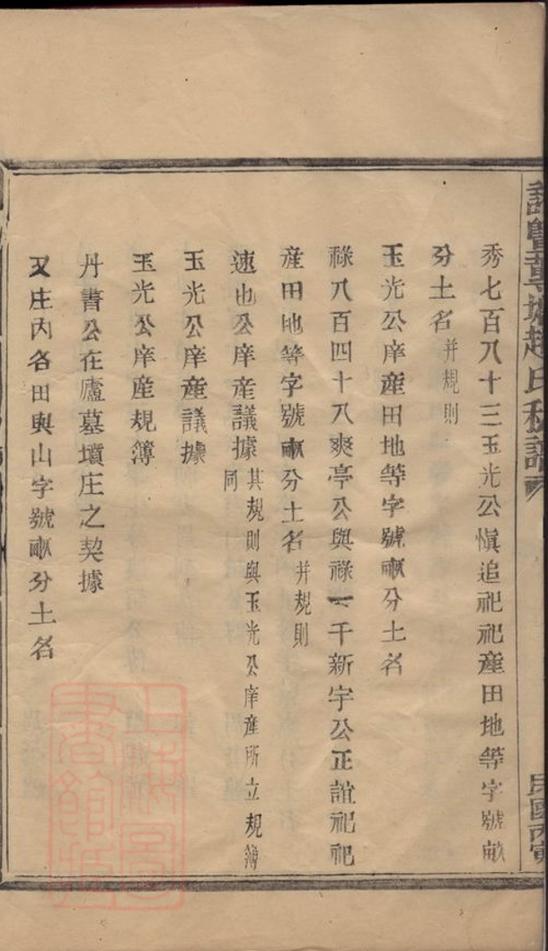 秀七百八十三玉光公愼追祀祀產田地等字號畝
分土名并規則
玉光公庠產田地等字號畝分土名
祿八百四十八爽亭公與祿一千新宇公正誼祀祀
產田地等字號畝分土名并規則
速也公庠產議據其規則與玉光公庠產所立規簿同
玉光公庠產議據
玉光公庠產規簿
丹書公在廬墓墳庄之契據
又庄內各田與山字號畝分土名
趙氏
民國丙寅
上海圖書館藏